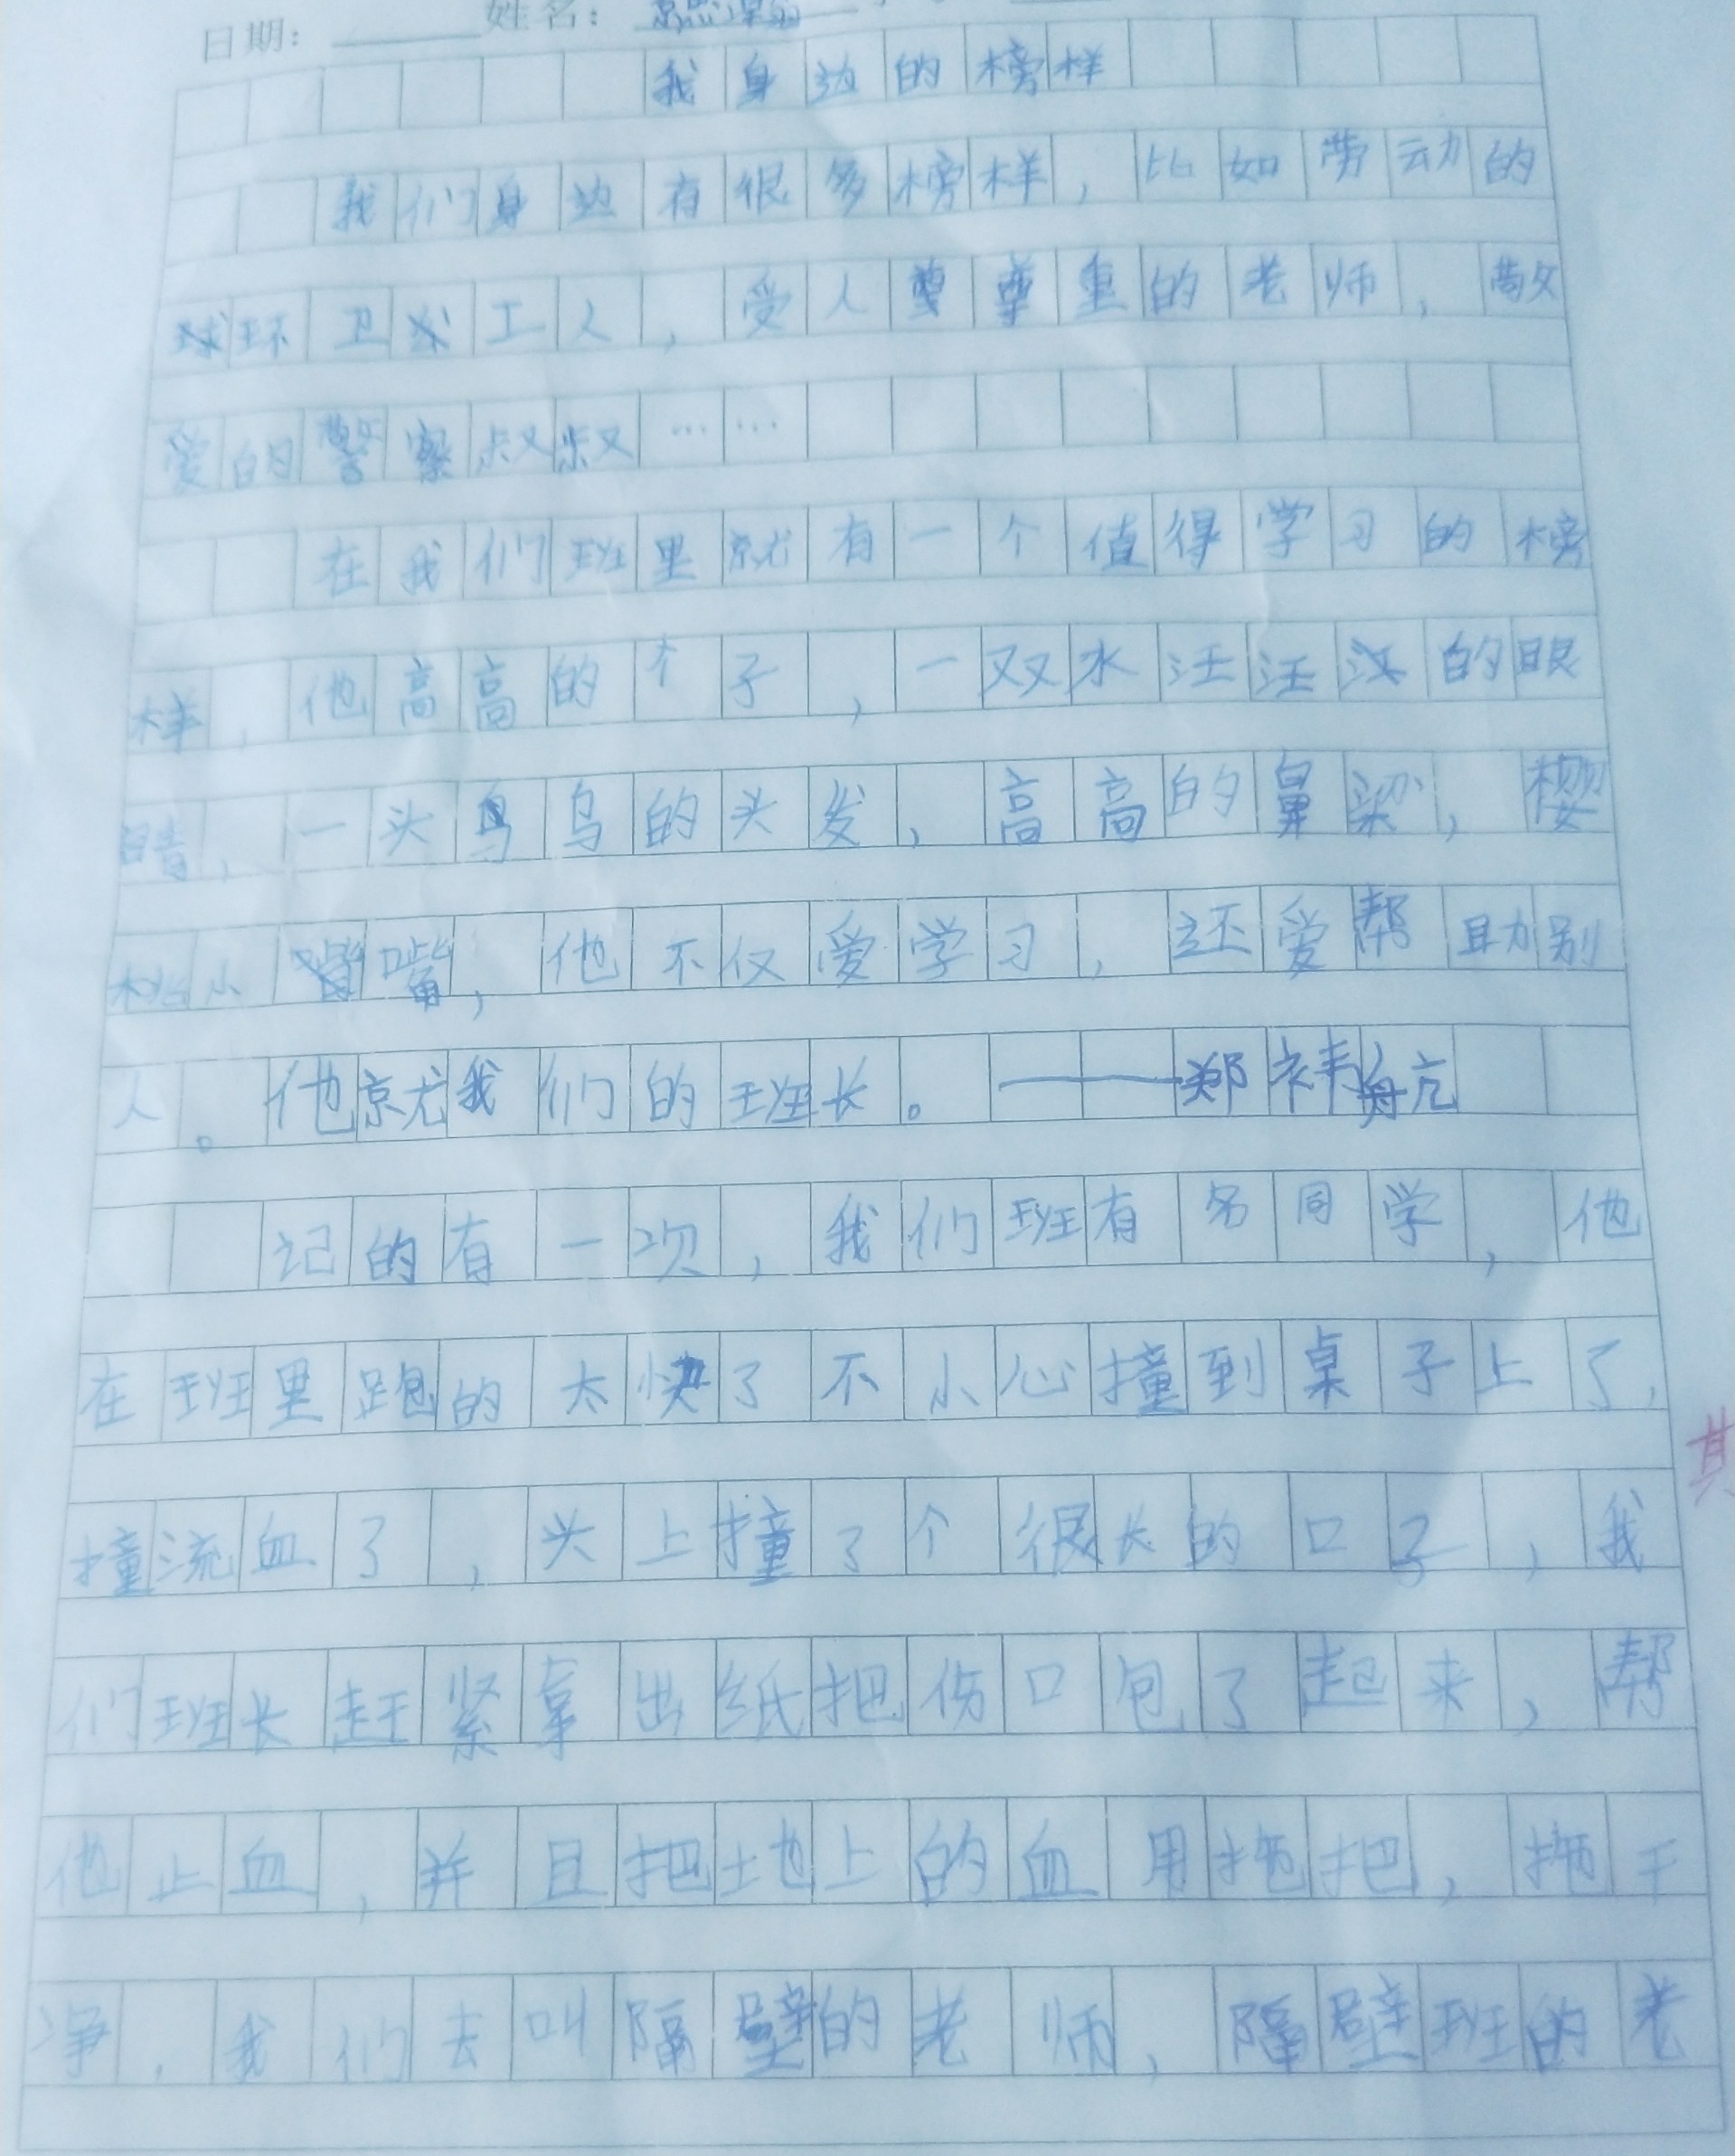 日期： 姓名：
我身边的榜样
我们身边有很多榜样，比如劳动的
环卫工人，受人尊重的老师，敬
爱的警察叔叔……
在我们班里就有一个值得学习的榜
样，他高高的个子，一双水汪汪的眼
睛，一头乌乌的头发，高高的鼻梁，樱
桃小嘴，他不仅爱学习，还爱帮助别
人。他就我们的班长。——郑祎航
记的有一次，我们班有名同学，他
在班里跑的太快了不小心撞到桌子上了，
撞流血了，头上撞了个很长的口子，我
们班长赶紧拿出纸把伤口包了起来，帮
他止血，并且把地上的血用拖把，拖干
净，我们去叫隔壁的老师，隔壁班的老